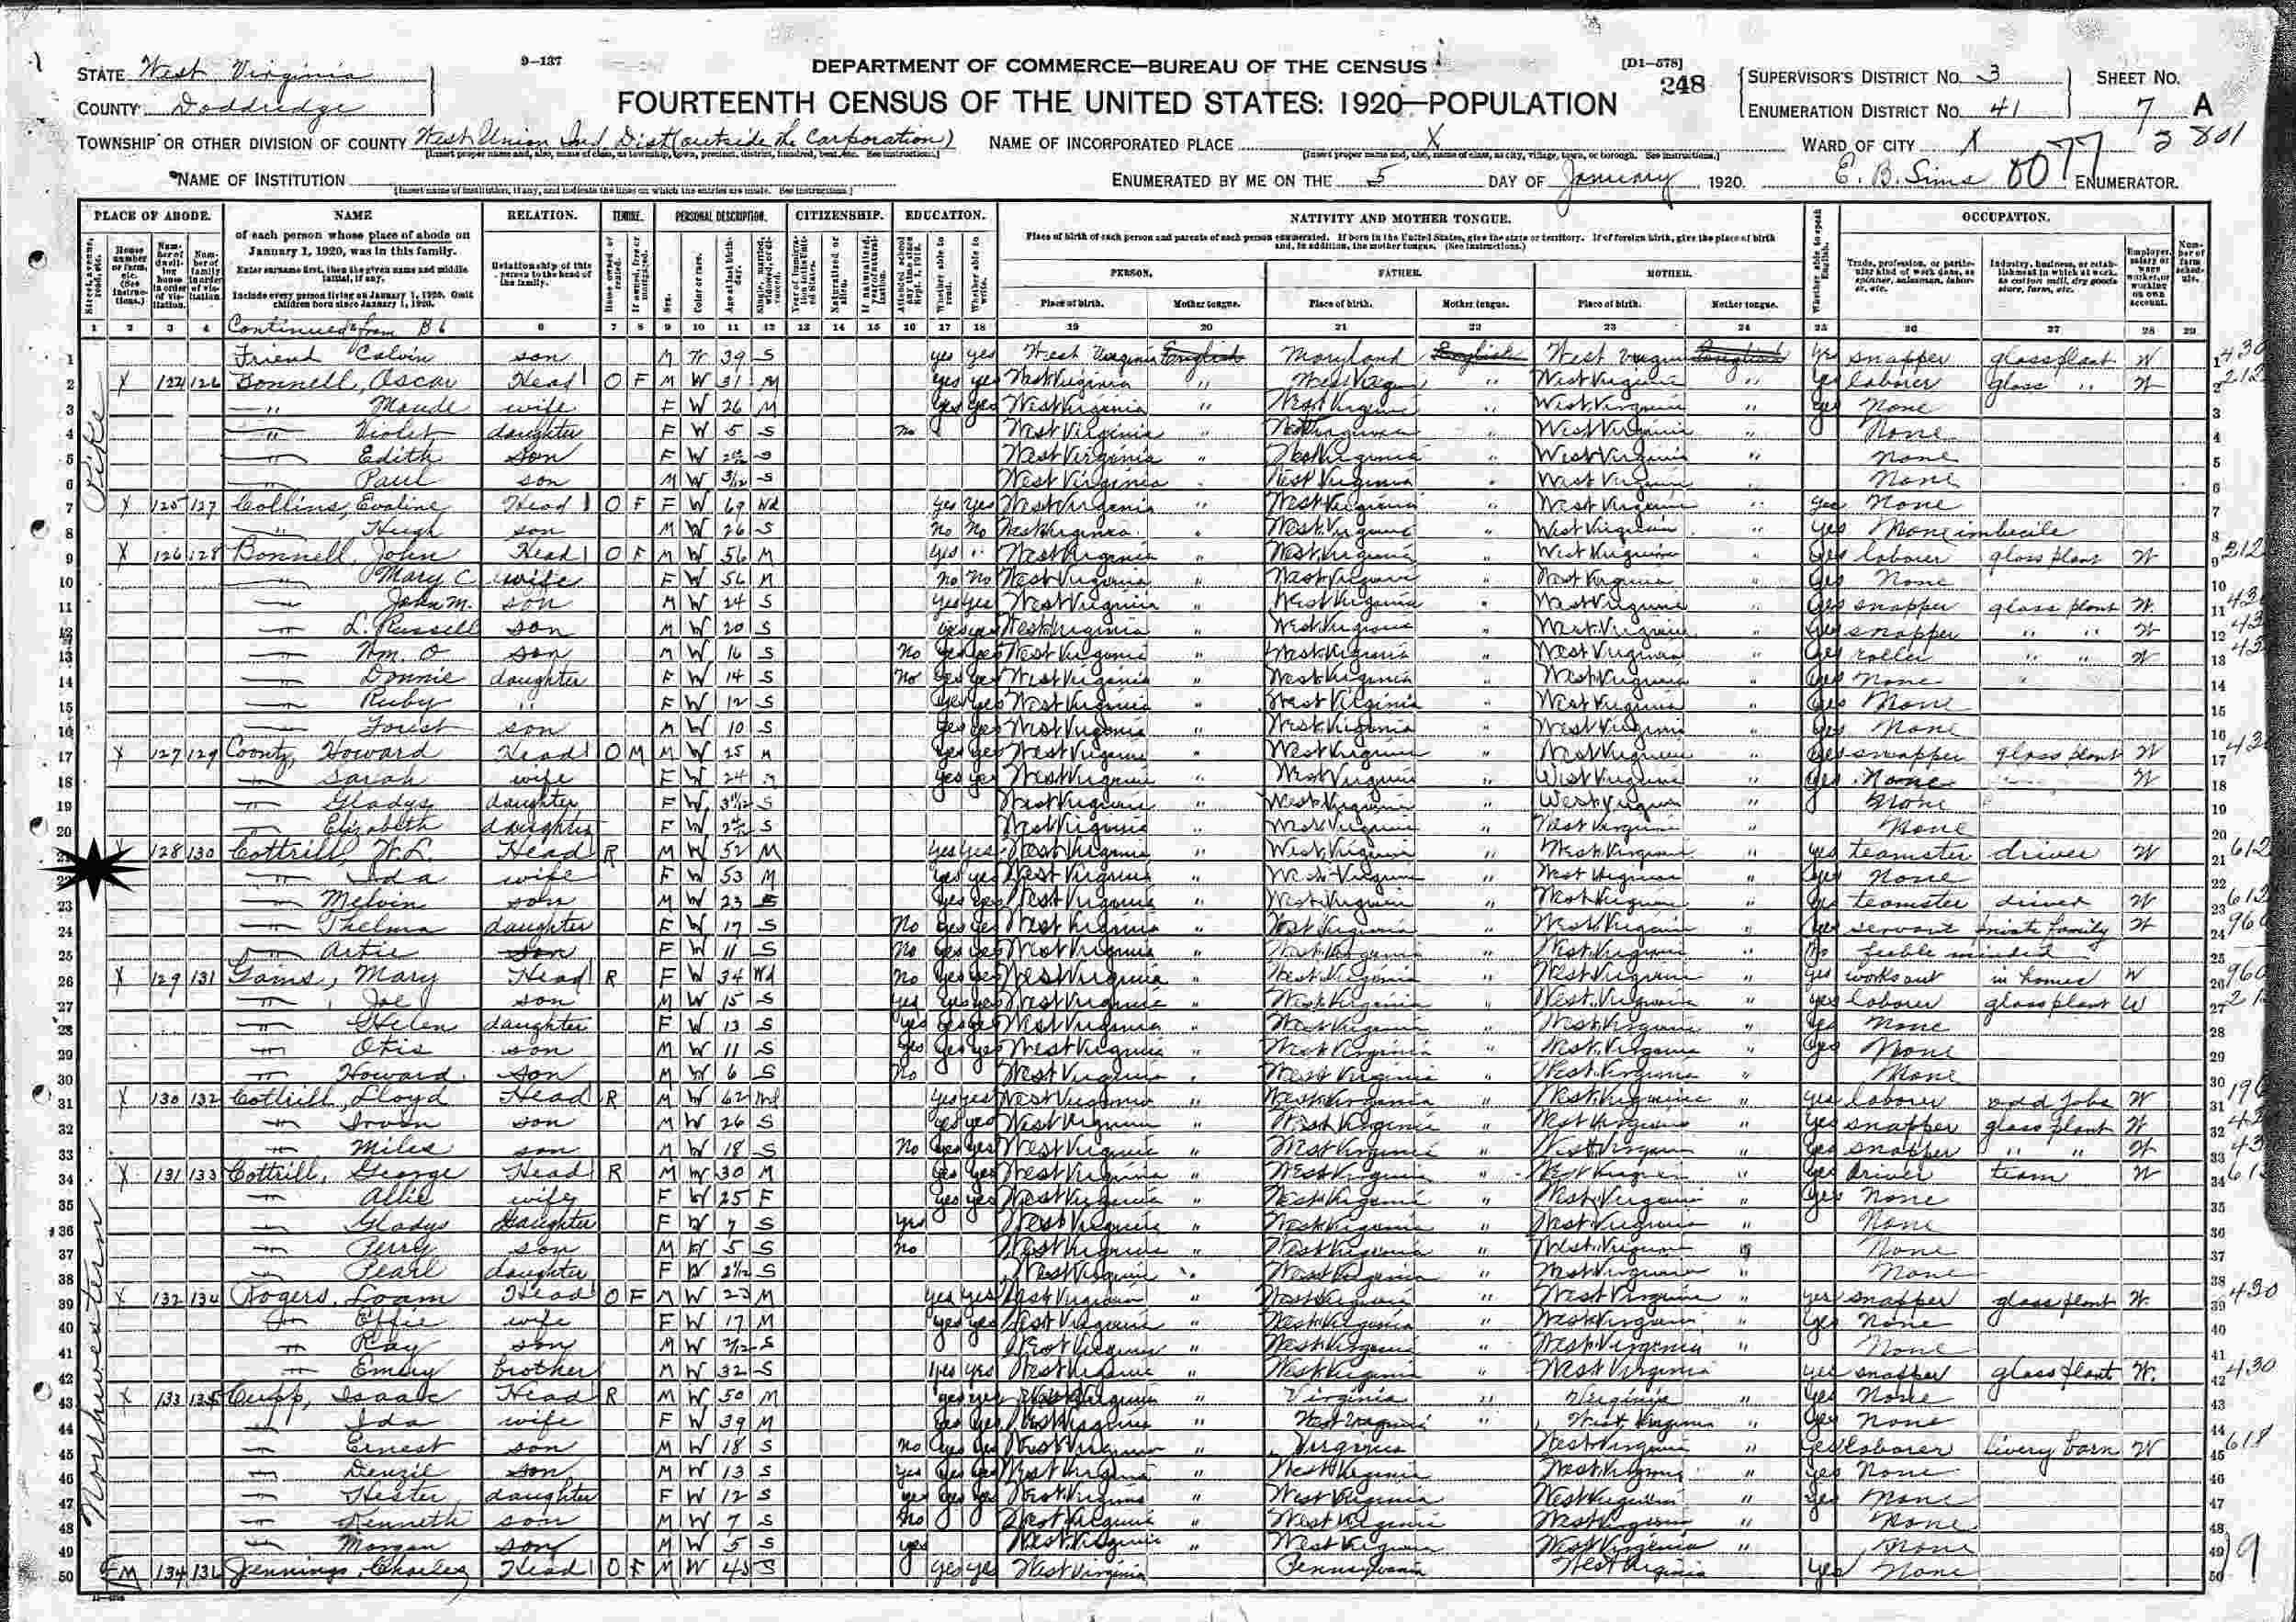 9-137
DEPARTMENT OF COMMERCE—BUREAU OF THE CENSUS
[D1-578]
248
STATE West Virginia
COUNTY Doddridge
FOURTEENTH CENSUS OF THE UNITED STATES: 1920—POPULATION
SUPERVISOR'S DISTRICT NO. 3
SHEET NO.
ENUMERATION DISTRICT NO. 41
7 A
TOWNSHIP OR OTHER DIVISION OF COUNTY West Union Ind Dist (outside the Corporation)
NAME OF INCORPORATED PLACE X
WARD OF CITY X
NAME OF INSTITUTION
ENUMERATED BY ME ON THE 5 DAY OF January, 1920. E. B. Sims ENUMERATOR.
PLACE OF ABODE. NAME RELATION. TENURE. PERSONAL DESCRIPTION. CITIZENSHIP. EDUCATION. NATIVITY AND MOTHER TONGUE. OCCUPATION.
of each person whose place of abode on January 1, 1920, was in this family.
Enter surname first, then the given name and middle initial, if any.
Include every person living on January 1, 1920. Omit children born since January 1, 1920.
Relationship of this person to the head of the family.
Place of birth of each person and parents of each person enumerated. If born in the United States, give the state or territory. If of foreign birth, give the place of birth and, in addition, the mother tongue. (See Instructions.)
PERSON. FATHER. MOTHER.
Place of birth. Mother tongue. Place of birth. Mother tongue. Place of birth. Mother tongue.
1 2 3 4 6 7 8 9 10 11 12 13 14 15 16 17 18 19 20 21 22 23 24 25 26 27 28 29
Continued from B6
1 Friend Calvin son M W 39 S yes yes West Virginia English Maryland English West Virginia English yes snapper glass plant W
2 X 124 126 Bonnell, Oscar Head O F M W 31 M yes yes West Virginia " West Virginia " West Virginia " yes laborer glass " W
3 " Maude wife F W 26 M yes yes West Virginia " West Virginia " West Virginia " yes None
4 " Violet daughter F W 5 S no West Virginia " West Virginia " West Virginia " None
5 " Edith son F W S West Virginia " West Virginia " West Virginia " None
6 " Paul son M W 3/12 S West Virginia West Virginia West Virginia None
7 X 125 127 Collins, Evaline Head O F F W 69 Wd yes yes West Virginia " West Virginia " West Virginia " yes None
8 " Hugh son M W 26 S No No West Virginia West Virginia " West Virginia " yes None imbecile
9 X 126 128 Bonnell, John Head O F M W 56 M yes " West Virginia West Virginia " West Virginia yes laborer glass plant W
10 " Mary C. wife F W 56 M No No West Virginia " West Virginia " West Virginia " yes None
11 " John M. son M W 24 S yes yes West Virginia " West Virginia " West Virginia " yes snapper glass plant W
12 " L. Russell son M W 20 S yes yes West Virginia " West Virginia " West Virginia " yes snapper " " W
13 " Wm. O son M W 16 S No yes yes West Virginia " West Virginia " West Virginia " yes roller " " W
14 " Donnie daughter F W 14 S No yes yes West Virginia " West Virginia " West Virginia " yes None
15 " Ruby " F W 12 S yes yes West Virginia " West Virginia " West Virginia " yes None
16 " Forest son M W 10 S yes yes West Virginia " West Virginia " West Virginia " yes None
17 X 127 129 Coontz, Howard Head O M M W 25 M yes yes West Virginia " West Virginia " West Virginia " yes snapper glass plant W
18 " Sarah wife F W 24 M yes yes West Virginia " West Virginia " West Virginia " yes None W
19 " Gladys daughter F W S West Virginia " West Virginia " West Virginia " None
20 " Elizabeth daughter F W S West Virginia " West Virginia " West Virginia " None
21 128 130 Cottrill, W.L. Head R M W 52 M yes yes West Virginia " West Virginia " West Virginia " yes teamster driver W
22 " Ida wife F W 53 M yes yes West Virginia " West Virginia " West Virginia " yes None
23 " Melvin son M W 23 S yes yes West Virginia " West Virginia " West Virginia " yes teamster driver W
24 " Thelma daughter F W 17 S No yes yes West Virginia " West Virginia " West Virginia " yes servant private family W
25 " Artie son F W 11 S No yes yes West Virginia " West Virginia " West Virginia " No feeble minded
26 X 129 131 Gains, Mary Head R F W 34 Wd No yes yes West Virginia " West Virginia " West Virginia " yes works out in homes W
27 " Joe son M W 15 S yes yes yes West Virginia " West Virginia " West Virginia " yes laborer glass plant W
28 " Helen daughter F W 13 S yes yes yes West Virginia " West Virginia " West Virginia " yes None
29 " Otis son M W 11 S yes yes yes West Virginia " West Virginia " West Virginia " yes None
30 " Howard son M W 6 S No West Virginia " West Virginia " West Virginia " None
31 X 130 132 Cottrill, Lloyd Head R M W 62 Wd yes yes West Virginia " West Virginia " West Virginia " yes laborer odd jobs W
32 " Irvin son M W 26 S yes yes West Virginia " West Virginia " West Virginia " yes snapper glass plant W
33 " Miles son M W 18 S No yes yes West Virginia " West Virginia " West Virginia " yes snapper " " W
34 X 131 133 Cottrill, George Head R M W 30 M yes yes West Virginia " West Virginia " West Virginia " yes driver team W
35 " Allie wife F W 25 F yes yes West Virginia " West Virginia " West Virginia " yes None
36 " Gladys daughter F W 7 S yes West Virginia " West Virginia " West Virginia " None
37 " Perry son M W 5 S no West Virginia " West Virginia " West Virginia " None
38 " Pearl daughter F W S West Virginia " West Virginia " West Virginia " None
39 X 132 134 Rogers, Loam Head O F M W 23 M yes yes West Virginia " West Virginia " West Virginia " yes snapper glass plant W 430
40 " Effie wife F W 17 M yes yes West Virginia " West Virginia " West Virginia " yes None
41 " Ray son M W S West Virginia " West Virginia " West Virginia " None
42 " Emery brother M W 32 S yes yes West Virginia " West Virginia " West Virginia " yes snapper glass plant W. 430
43 X 133 135 Cupp, Isaac Head R M W 50 M yes yes West Virginia " Virginia " Virginia " yes None
44 " Ida wife F W 39 M yes yes West Virginia " West Virginia " West Virginia " yes None
45 " Ernest son M W 18 S No yes yes West Virginia " Virginia " West Virginia " yes laborer livery barn W 618
46 " Denzil son M W 13 S yes yes yes West Virginia " West Virginia " West Virginia " yes None
47 " Hester daughter F W 12 S yes yes yes West Virginia " West Virginia " West Virginia " yes None
48 " Kenneth son M W 7 S No West Virginia " West Virginia " West Virginia " None
49 " Morgan son M W 5 S yes West Virginia " West Virginia " West Virginia " None
50 FM 134 136 Jennings, Charley Head O F M W 45 S yes yes West Virginia Pennsylvania West Virginia yes None
Pike
Northwestern